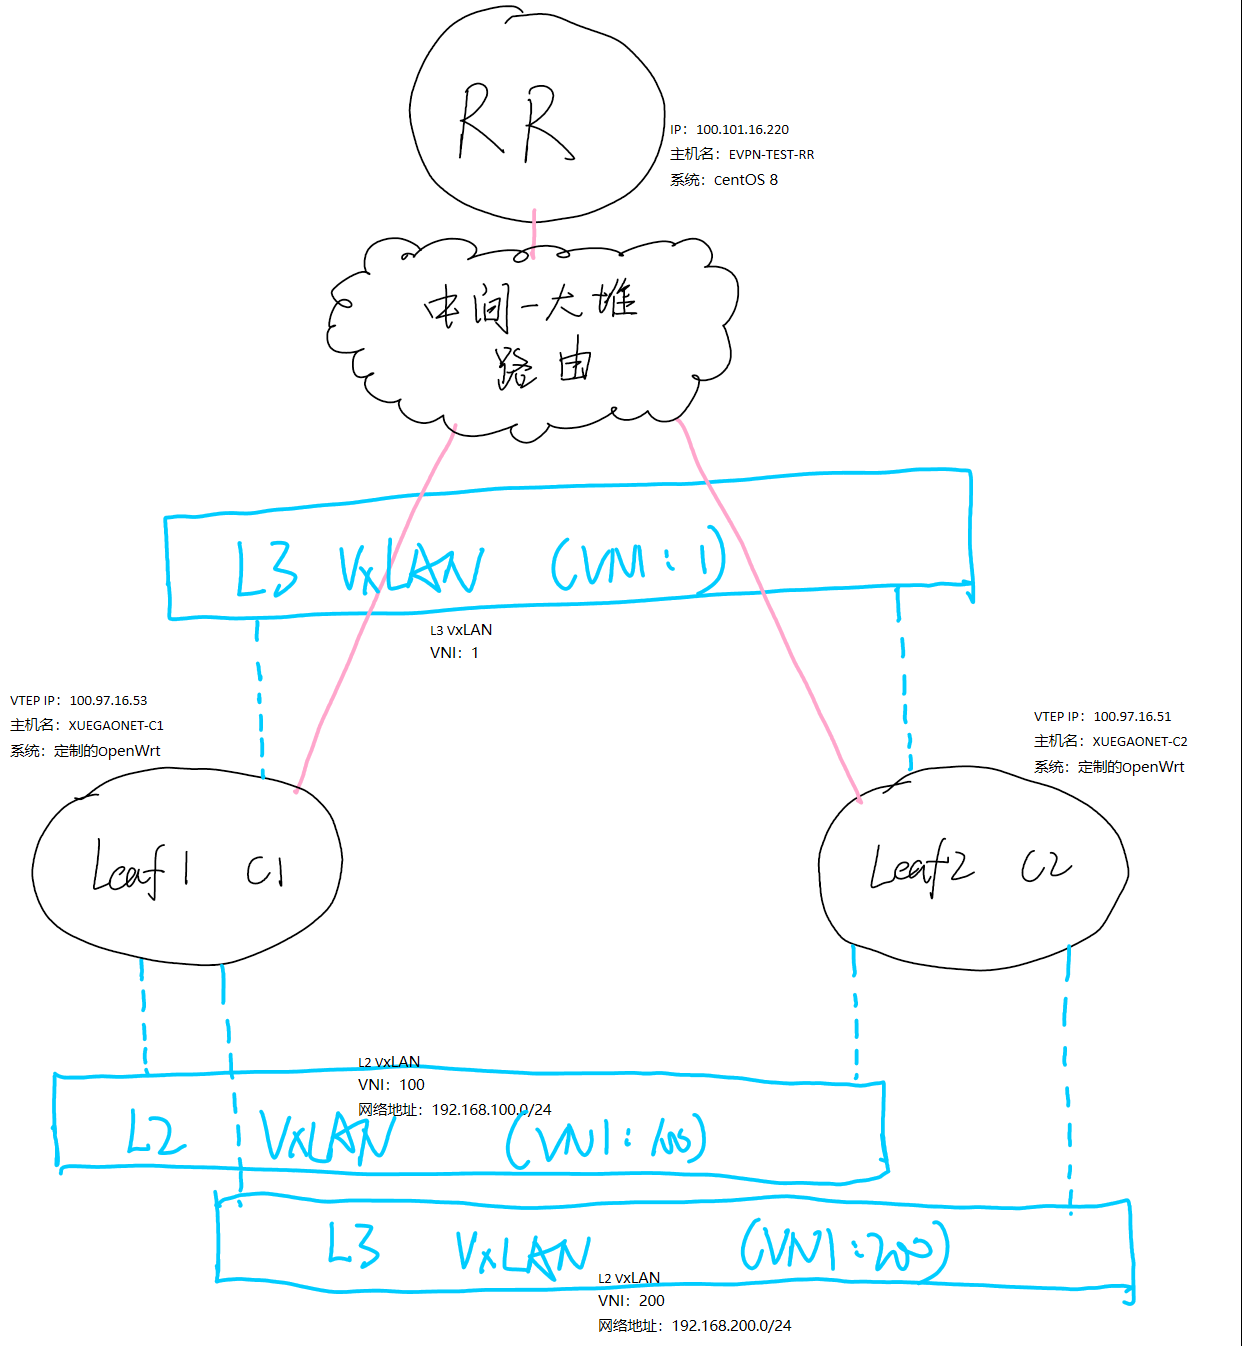 RR
IP：100.101.16.220
主机名：EVPN-TEST-RR
系统：centOS 8
中间一大堆
路由
L3 VxLAN (VNI:1)
L3 VxLAN
VNI：1
VTEP IP：100.97.16.53
主机名：XUEGAONET-C1
系统：定制的OpenWrt
VTEP IP：100.97.16.51
主机名：XUEGAONET-C2
系统：定制的OpenWrt
Leaf1 C1
Leaf2 C2
L2 VxLAN
VNI：100
网络地址：192.168.100.0/24
L2 VxLAN (VNI:100)
L3 VxLAN (VNI:200)
L2 VxLAN
VNI：200
网络地址：192.168.200.0/24